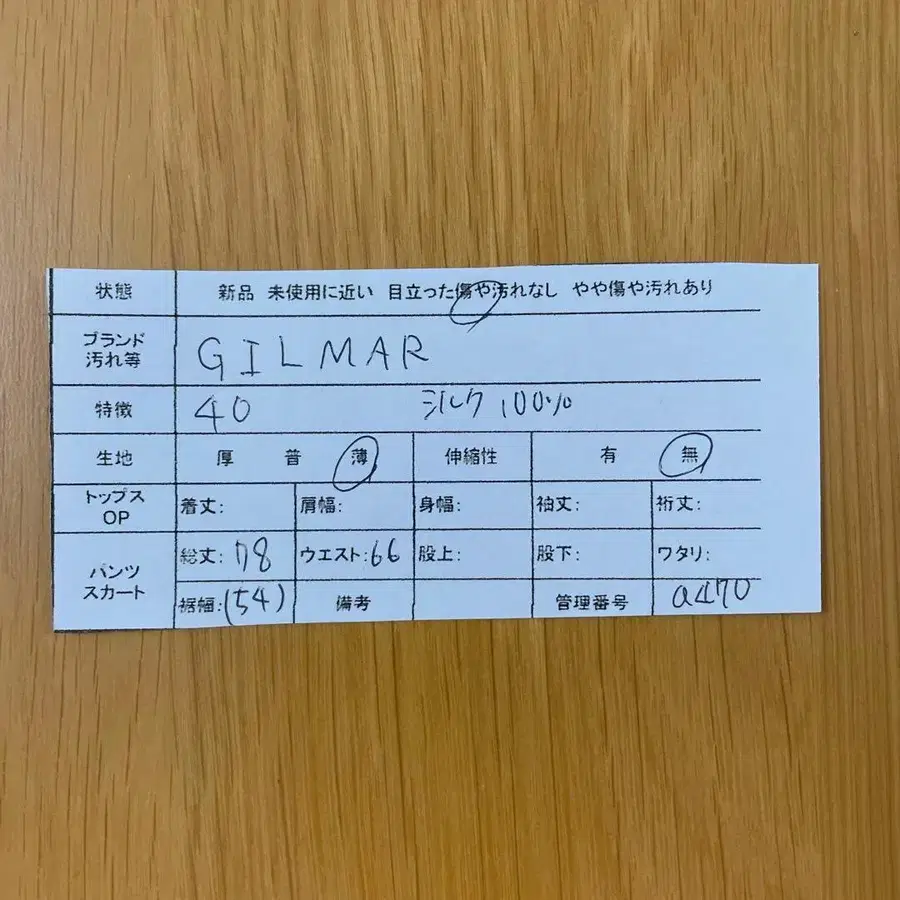 状態 新品 未使用に近い 目立った傷や汚れなし やや傷や汚れあり
ブランド
汚れ等 GILMAR
特徴 40 シルク 100%
生地 厚 普 薄 伸縮性 有 無
トップス
OP 着丈: 肩幅: 身幅: 袖丈: 裄丈:
パンツ
スカート 総丈: 78 ウエスト: 66 股上: 股下: ワタリ:
裾幅: (54) 備考 管理番号 a470